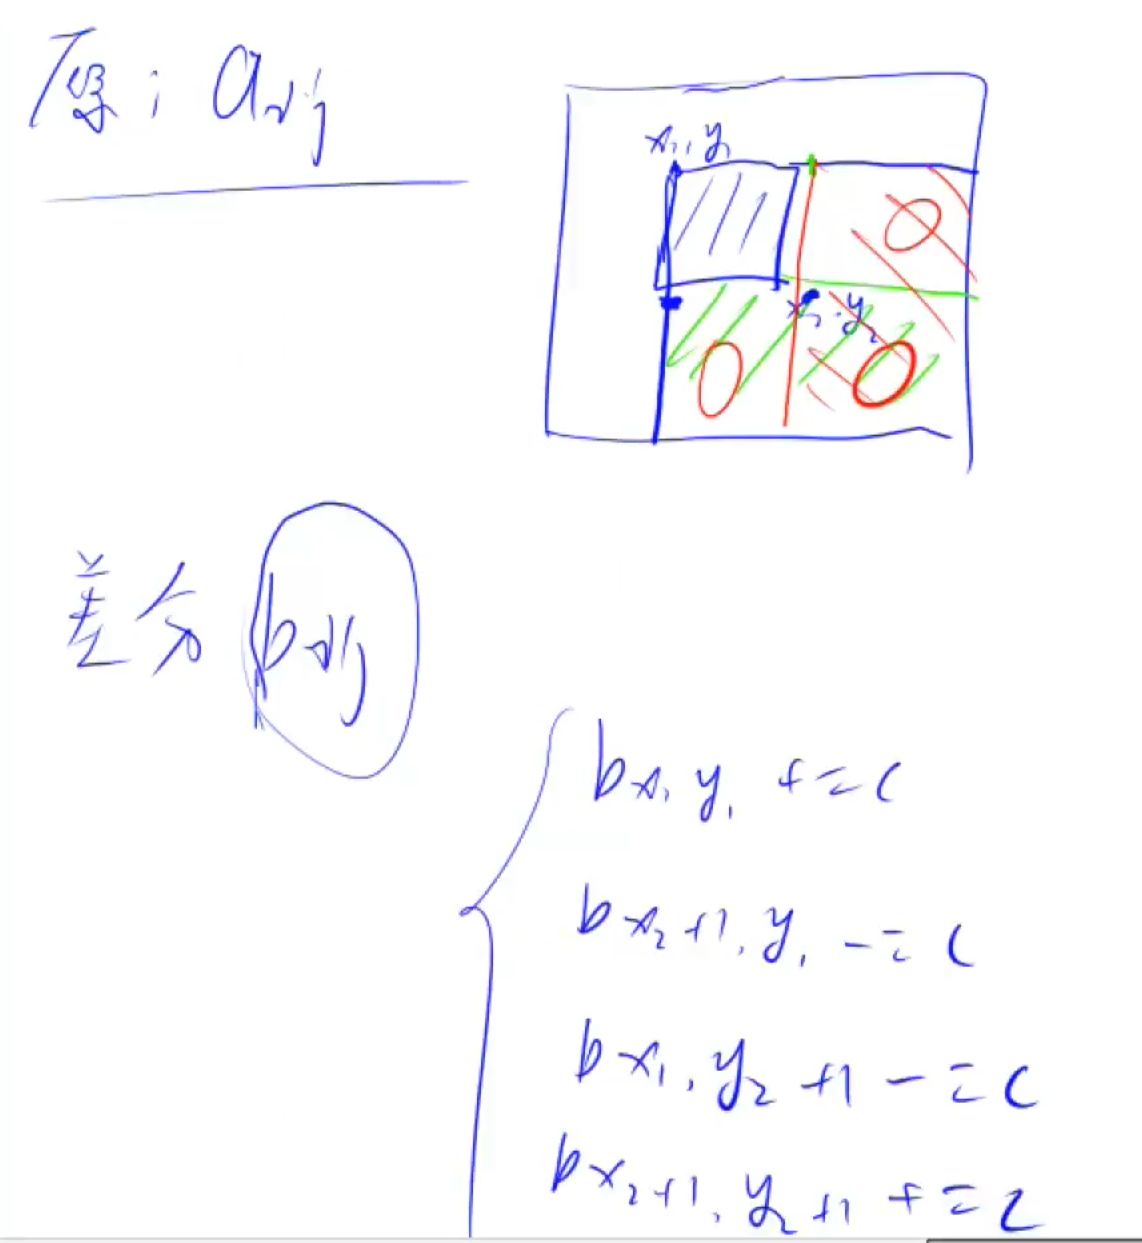 原: aij
x1, y1
x2, y2
差分 bij
bx1 y1 += c
bx2+1, y1 -= c
bx1, y2+1 -= c
bx2+1, y2+1 += c